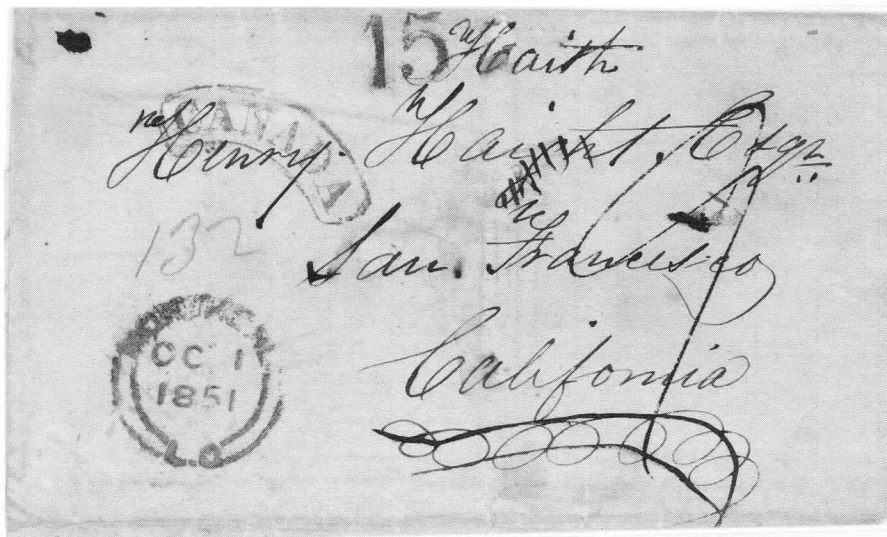 15
Haith
CANADA
Henry Haight Esqr
132
San Francisco
California
MONTREAL
OC 1
1851
L.C